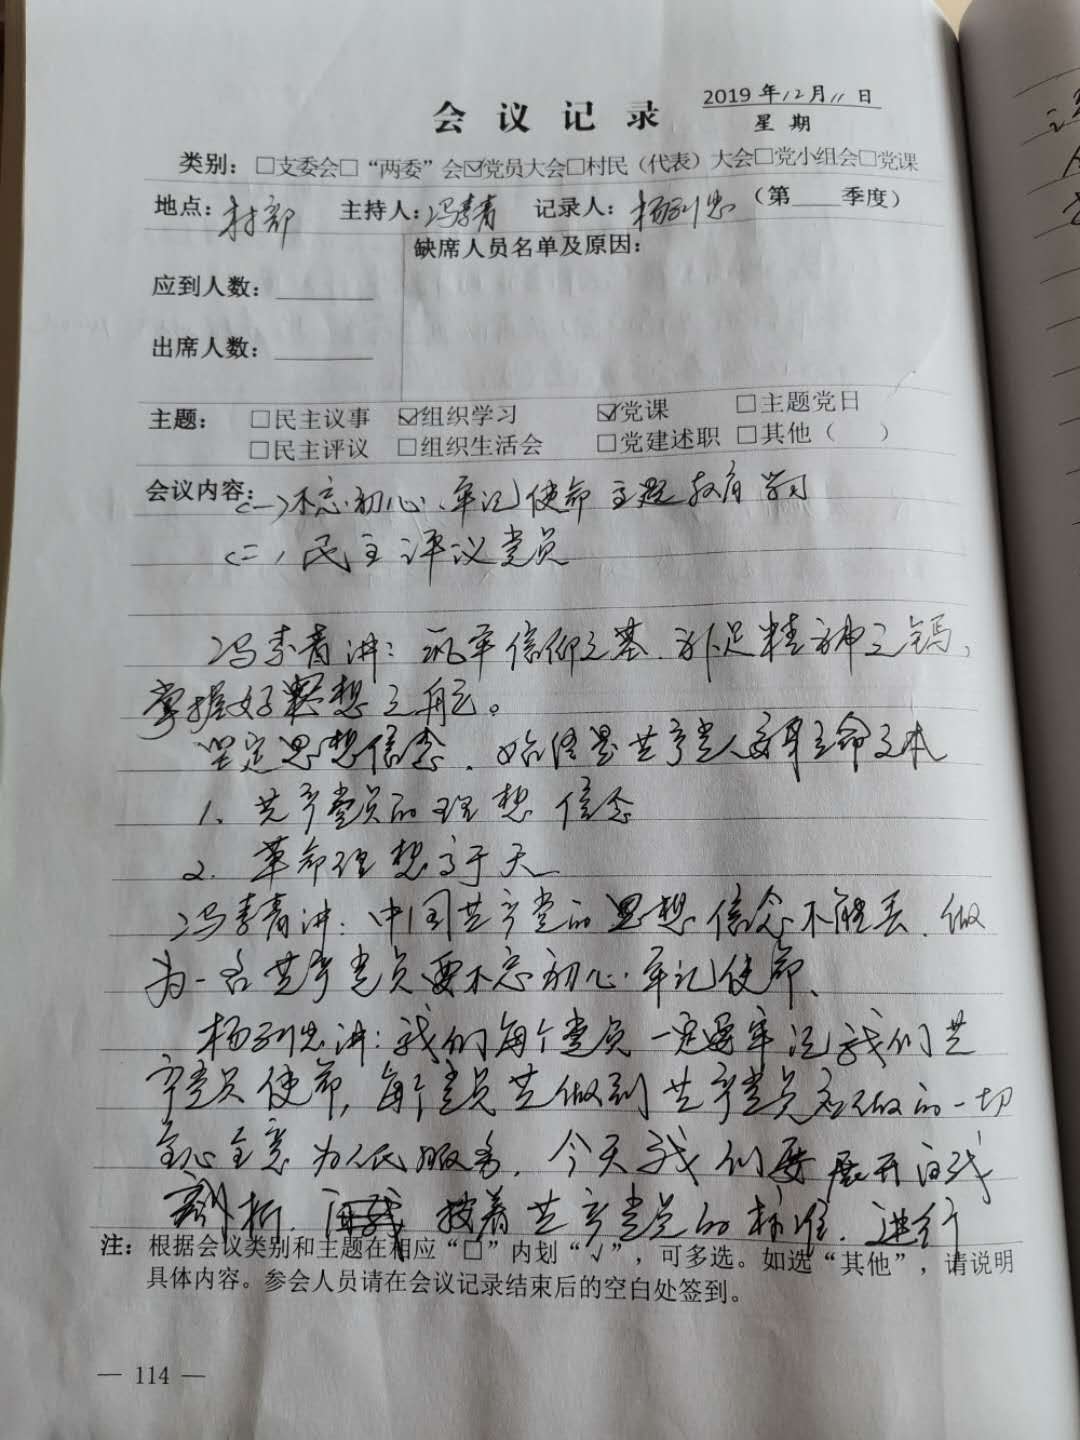 会议记录
2019年12月11日
星期
类别：□支委会□“两委”会☑党员大会□村民（代表）大会□党小组会□党课
地点：村部 主持人：冯李青 记录人：杨列忠 （第 季度）
缺席人员名单及原因：
应到人数：
出席人数：
主题： □民主议事 ☑组织学习 ☑党课 □主题党日
□民主评议 □组织生活会 □党建述职 □其他（ ）
会议内容：(一)不忘初心、牢记使命主题教育学习
(二)民主评议党员
冯李青讲：筑牢信仰之基、补足精神之钙、
掌握好思想之舵。
坚定思想信念，始终是共产党人安身立命之本
1、共产党员的理想信念
2、革命理想高于天
冯李青讲：中国共产党的思想信念不能丢，做
为一名共产党员要不忘初心、牢记使命、
杨列忠讲：我们每个党员一定要牢记我们共
产党员使命，每个党员共做到共产党员应做的一切
全心全意为人民服务，今天我们要展开自我
剖析， 按着共产党员的标准，进行
注：根据会议类别和主题在相应“□”内划“√”，可多选。如选“其他”，请说明
具体内容。参会人员请在会议记录结束后的空白处签到。
— 114 —